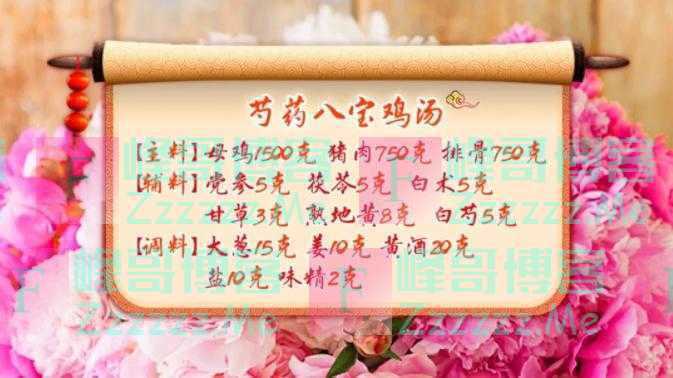 芍药八宝鸡汤
[主料] 母鸡1500克 猪肉750克 排骨750克
[辅料] 党参5克 茯苓5克 白术5克
甘草3克 熟地黄8克 白芍5克
[调料] 大葱15克 姜10克 黄酒20克
盐10克 味精2克
峰哥博客
Zzzzzz.Me
峰哥博客
Zzzzzz.Me
峰哥博客
Zzzzzz.Me
峰哥博客
Zzzzzz.Me